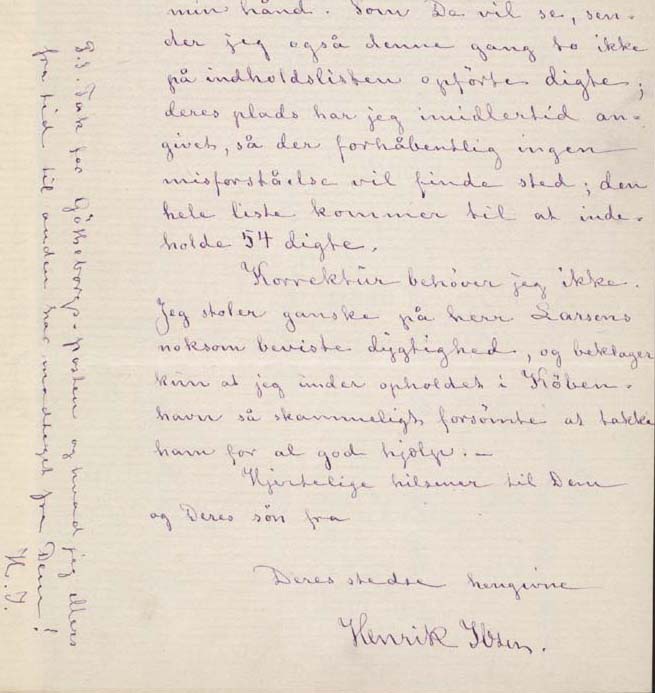 min hånd. Som De vil se, sen-
der jeg også denne gang to ikke
på indholdslisten opförte digte;
deres plads har jeg imidlertid an-
givet, så der forhåbentlig ingen
misforståelse vil finde sted; den
hele liste kommer til at inde-
holde 54 digte.
Korrektur behøver jeg ikke.
Jeg stoler ganske på herr Larsens
noksom beviste dygtighed, og beklager
kun at jeg under opholdet i Köben-
havn så skammeligt forsömte at takke
ham for al god hjælp. –
Hjertelige hilsener til Dem
og Deres sön fra
Deres stedse hengivne
Henrik Ibsen.
P.S. Tak for Götheborgs-posten og hvad jeg ellers
fra tid til anden har modtaget fra Dem!
H. I.